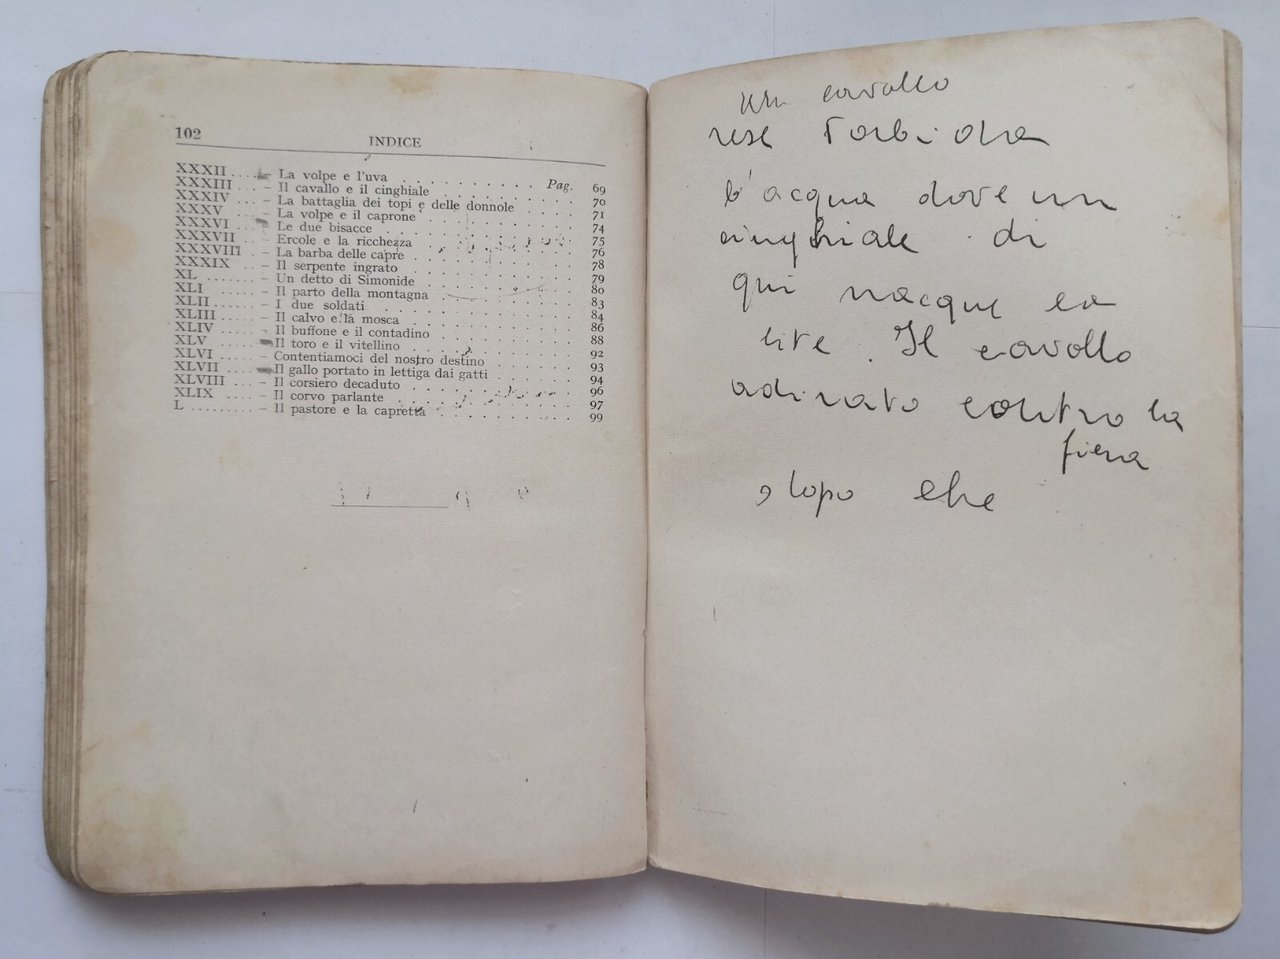 102
INDICE
XXXII .... – La volpe e l'uva . . . . . . . . . . Pag. 69
XXXIII ... – Il cavallo e il cinghiale . . . . . . . . . . 70
XXXIV ... – La battaglia dei topi e delle donnole . . . . 71
XXXV .... – La volpe e il caprone . . . . . . . . . . . 74
XXXVI ... – Le due bisacce . . . . . . . . . . . . . . 75
XXXVII .. – Ercole e la ricchezza . . . . . . . . . . . 76
XXXVIII .. – La barba delle capre . . . . . . . . . . . 78
XXXIX ... – Il serpente ingrato . . . . . . . . . . . . 79
XL ....... – Un detto di Simonide . . . . . . . . . . . 80
XLI ...... – Il parto della montagna . . . . . . . . . . 83
XLII ..... – I due soldati . . . . . . . . . . . . . . . 84
XLIII .... – Il calvo e la mosca . . . . . . . . . . . . 86
XLIV .... – Il buffone e il contadino . . . . . . . . . . 88
XLV ..... – Il toro e il vitellino . . . . . . . . . . . . 92
XLVI .... – Contentiamoci del nostro destino . . . . . . 93
XLVII .... – Il gallo portato in lettiga dai gatti . . . . . . 94
XLVIII ... – Il corsiero decaduto . . . . . . . . . . . . 96
XLIX .... – Il corvo parlante . . . . . . . . . . . . . 97
L ........ – Il pastore e la capretta . . . . . . . . . . . 99
un cavallo
rese torbida
l'acqua dove un
cinghiale di
qui nacque la
lite. Il cavallo
adirato contro la
fiera
, dopo che